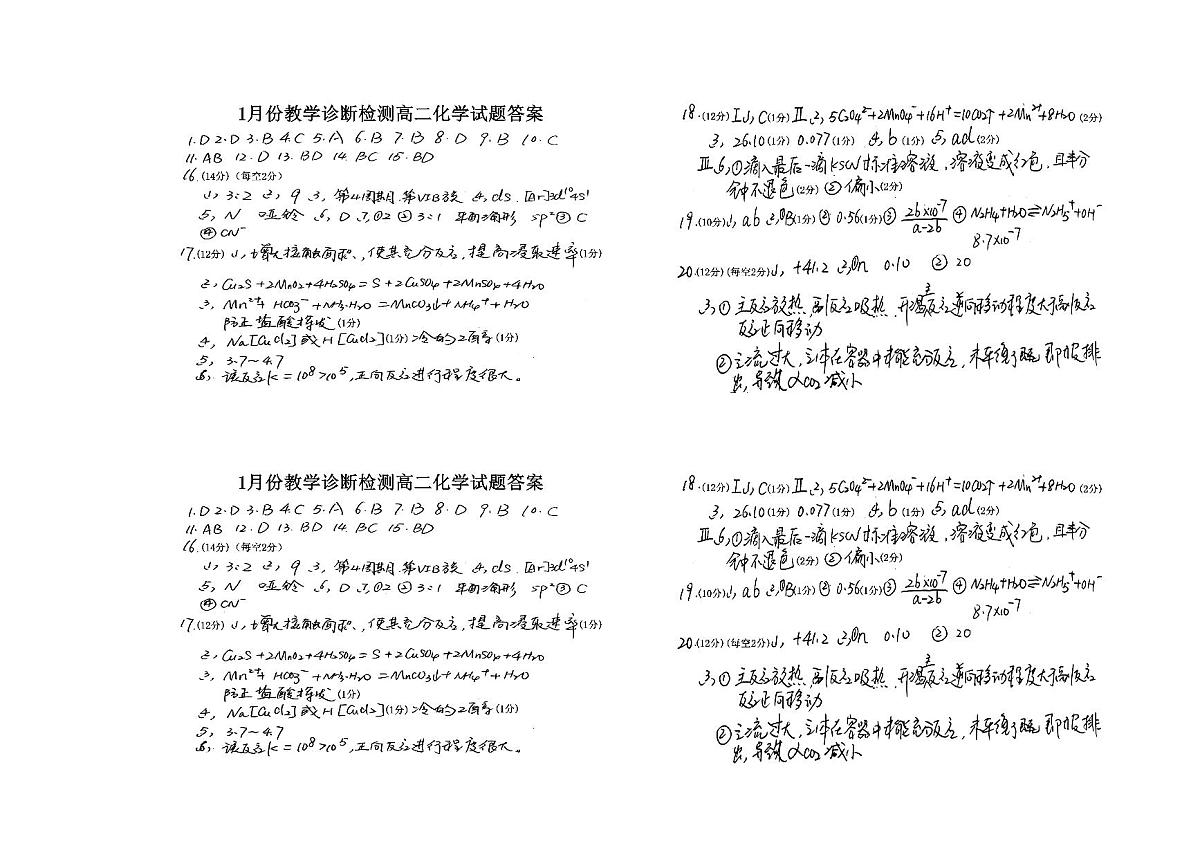 1月份教学诊断检测高二化学试题答案
1.D 2.D 3.B 4.C 5.A 6.B 7.B 8.D 9.B 10.C
11.AB 12.D 13.BD 14.BC 15.BD
16.(14分)(每空2分)
1, 3:2 2, 9 3, 第4周期.第VIB族 4, ds. [Ar]3d¹⁰4s¹
5, N 吡啶 6, D 7,①2 ②3:1 平面三角形 sp² ③ C
④ CN⁻
17.(12分) 1, 增大接触面积,使其充分反应,提高浸取速率(1分)
2, Cu₂S+2MnO₂+4H₂SO₄=S+2CuSO₄+2MnSO₄+4H₂O
3, Mn²⁺+HCO₃⁻+NH₃·H₂O=MnCO₃↓+NH₄⁺+H₂O
防止盐酸挥发(1分)
4, Na[CuCl₂]或H[CuCl₂](1分)冷的乙醇(1分)
5, 3.7~4.7
6, 该反应K=10⁸>10⁵,正向反应进行程度很大。
18.(12分)I,1,C(1分)II,2,5C₂O₄²⁻+2MnO₄⁻+16H⁺=10CO₂↑+2Mn²⁺+8H₂O(2分)
3, 26.10(1分) 0.077(1分) 4,b(1分) 5,ad(2分)
III,6,①滴入最后一滴KSCN标准溶液,溶液变成红色,且半分
钟不退色(2分)②偏小(2分)
19.(10分)1, ab 2,①B(1分)② 0.56(1分)③ 2b×10⁻⁷/(a-2b) ④ N₂H₄+H₂O⇌N₂H₅⁺+OH⁻
8.7×10⁻⁷
20.(12分)(每空2分)1, +41.2 2,①n 0.10 ② 20
3,①主反应放热,副反应吸热,升温主反应逆向移动程度大于副反应
反应正向移动
②主流过大,气体在容器中未能充分反应,未平衡了 即被排
出,导致αCO₂减小
1月份教学诊断检测高二化学试题答案
1.D 2.D 3.B 4.C 5.A 6.B 7.B 8.D 9.B 10.C
11.AB 12.D 13.BD 14.BC 15.BD
16.(14分)(每空2分)
1, 3:2 2, 9 3, 第4周期.第VIB族 4, ds. [Ar]3d¹⁰4s¹
5, N 吡啶 6, D 7,①2 ②3:1 平面三角形 sp² ③ C
④ CN⁻
17.(12分) 1, 增大接触面积,使其充分反应,提高浸取速率(1分)
2, Cu₂S+2MnO₂+4H₂SO₄=S+2CuSO₄+2MnSO₄+4H₂O
3, Mn²⁺+HCO₃⁻+NH₃·H₂O=MnCO₃↓+NH₄⁺+H₂O
防止盐酸挥发(1分)
4, Na[CuCl₂]或H[CuCl₂](1分)冷的乙醇(1分)
5, 3.7~4.7
6, 该反应K=10⁸>10⁵,正向反应进行程度很大。
18.(12分)I,1,C(1分)II,2,5C₂O₄²⁻+2MnO₄⁻+16H⁺=10CO₂↑+2Mn²⁺+8H₂O(2分)
3, 26.10(1分) 0.077(1分) 4,b(1分) 5,ad(2分)
III,6,①滴入最后一滴KSCN标准溶液,溶液变成红色,且半分
钟不退色(2分)②偏小(2分)
19.(10分)1, ab 2,①B(1分)② 0.56(1分)③ 2b×10⁻⁷/(a-2b) ④ N₂H₄+H₂O⇌N₂H₅⁺+OH⁻
8.7×10⁻⁷
20.(12分)(每空2分)1, +41.2 2,①n 0.10 ② 20
3,①主反应放热,副反应吸热,升温主反应逆向移动程度大于副反应
反应正向移动
②主流过大,气体在容器中未能充分反应,未平衡了 即被排
出,导致αCO₂减小